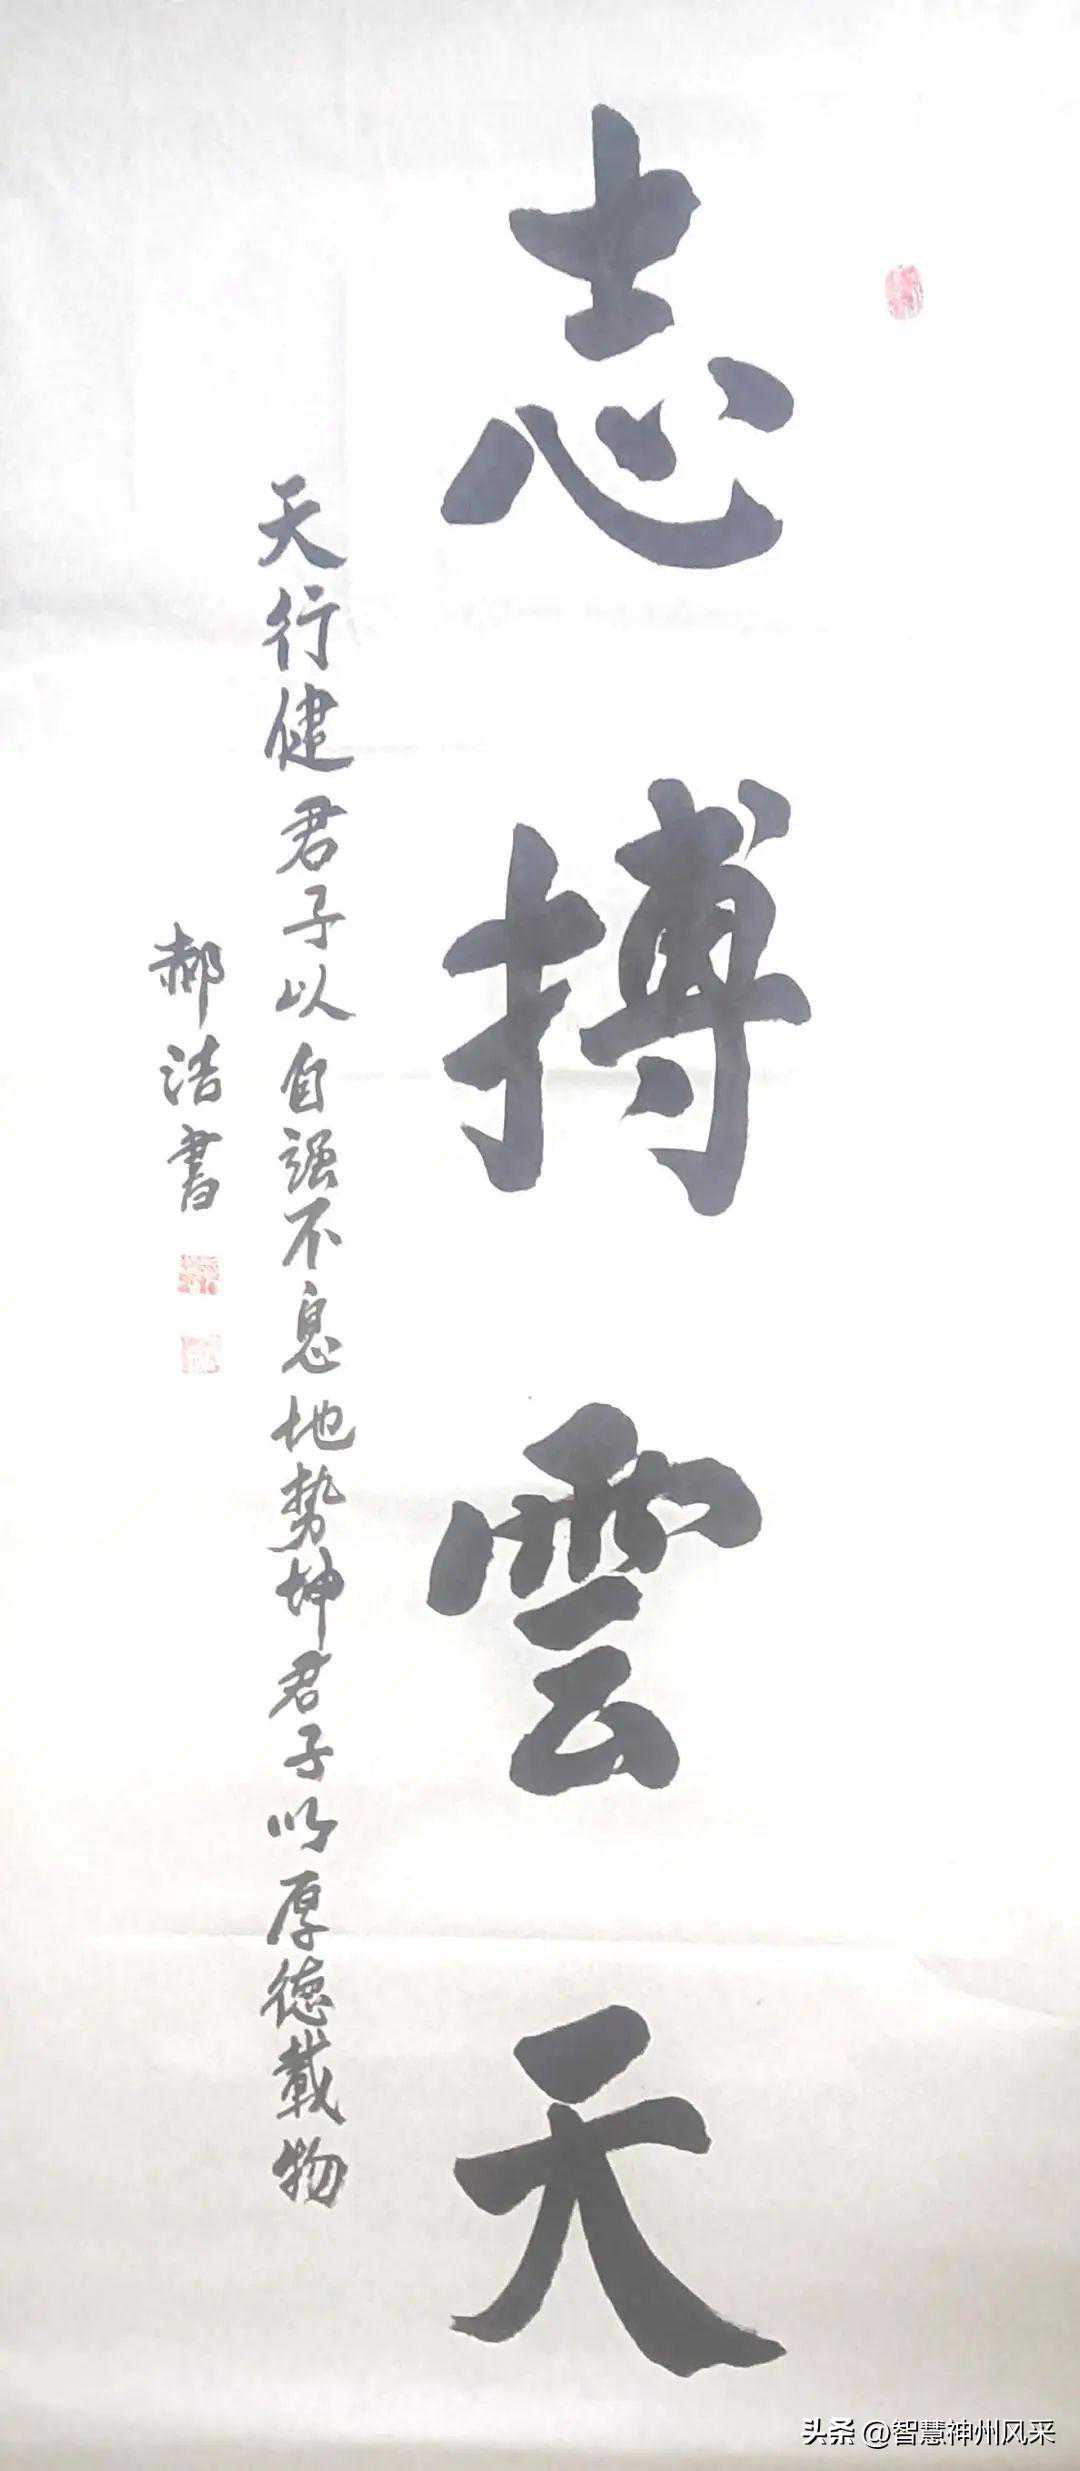 志搏雲天
天行健君子以自强不息地势坤君子以厚德載物
郝浩書
头条 @智慧神州风采